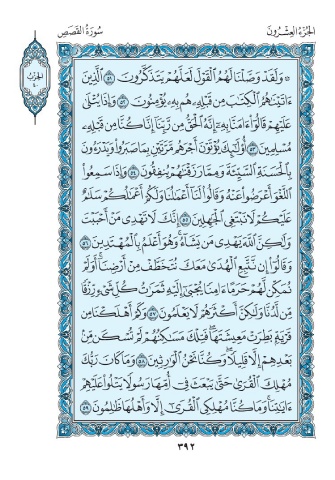 الجزء العشرون
سورة القصص
الحزب
٤٠
۞ وَلَقَدْ وَصَّلْنَا لَهُمُ ٱلْقَوْلَ لَعَلَّهُمْ يَتَذَكَّرُونَ ٥١ ٱلَّذِينَ
ءَاتَيْنَٰهُمُ ٱلْكِتَٰبَ مِن قَبْلِهِۦ هُم بِهِۦ يُؤْمِنُونَ ٥٢ وَإِذَا يُتْلَىٰ
عَلَيْهِمْ قَالُوٓا۟ ءَامَنَّا بِهِۦٓ إِنَّهُ ٱلْحَقُّ مِن رَّبِّنَآ إِنَّا كُنَّا مِن قَبْلِهِۦ
مُسْلِمِينَ ٥٣ أُو۟لَٰٓئِكَ يُؤْتَوْنَ أَجْرَهُم مَّرَّتَيْنِ بِمَا صَبَرُوا۟ وَيَدْرَءُونَ
بِٱلْحَسَنَةِ ٱلسَّيِّئَةَ وَمِمَّا رَزَقْنَٰهُمْ يُنفِقُونَ ٥٤ وَإِذَا سَمِعُوا۟
ٱللَّغْوَ أَعْرَضُوا۟ عَنْهُ وَقَالُوا۟ لَنَآ أَعْمَٰلُنَا وَلَكُمْ أَعْمَٰلُكُمْ سَلَٰمٌ
عَلَيْكُمْ لَا نَبْتَغِى ٱلْجَٰهِلِينَ ٥٥ إِنَّكَ لَا تَهْدِى مَنْ أَحْبَبْتَ
وَلَٰكِنَّ ٱللَّهَ يَهْدِى مَن يَشَآءُ وَهُوَ أَعْلَمُ بِٱلْمُهْتَدِينَ ٥٦
وَقَالُوٓا۟ إِن نَّتَّبِعِ ٱلْهُدَىٰ مَعَكَ نُتَخَطَّفْ مِنْ أَرْضِنَآ أَوَلَمْ
نُمَكِّن لَّهُمْ حَرَمًا ءَامِنًا يُجْبَىٰٓ إِلَيْهِ ثَمَرَٰتُ كُلِّ شَىْءٍ رِّزْقًا
مِّن لَّدُنَّا وَلَٰكِنَّ أَكْثَرَهُمْ لَا يَعْلَمُونَ ٥٧ وَكَمْ أَهْلَكْنَا مِن
قَرْيَةٍۭ بَطِرَتْ مَعِيشَتَهَا فَتِلْكَ مَسَٰكِنُهُمْ لَمْ تُسْكَن مِّنۢ
بَعْدِهِمْ إِلَّا قَلِيلًا وَكُنَّا نَحْنُ ٱلْوَٰرِثِينَ ٥٨ وَمَا كَانَ رَبُّكَ
مُهْلِكَ ٱلْقُرَىٰ حَتَّىٰ يَبْعَثَ فِىٓ أُمِّهَا رَسُولًا يَتْلُوا۟ عَلَيْهِمْ
ءَايَٰتِنَا وَمَا كُنَّا مُهْلِكِى ٱلْقُرَىٰٓ إِلَّا وَأَهْلُهَا ظَٰلِمُونَ ٥٩
٣٩٢